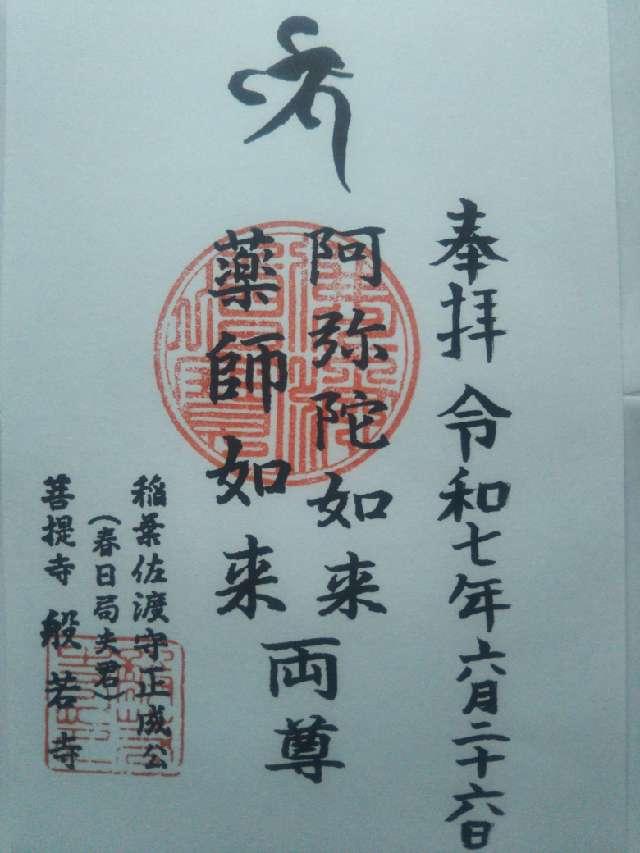 奉拝 令和七年六月二十六日
阿弥陀如来
薬師如来
両尊
稲葉佐渡守正成公
(春日局夫君)
菩提寺 般若寺